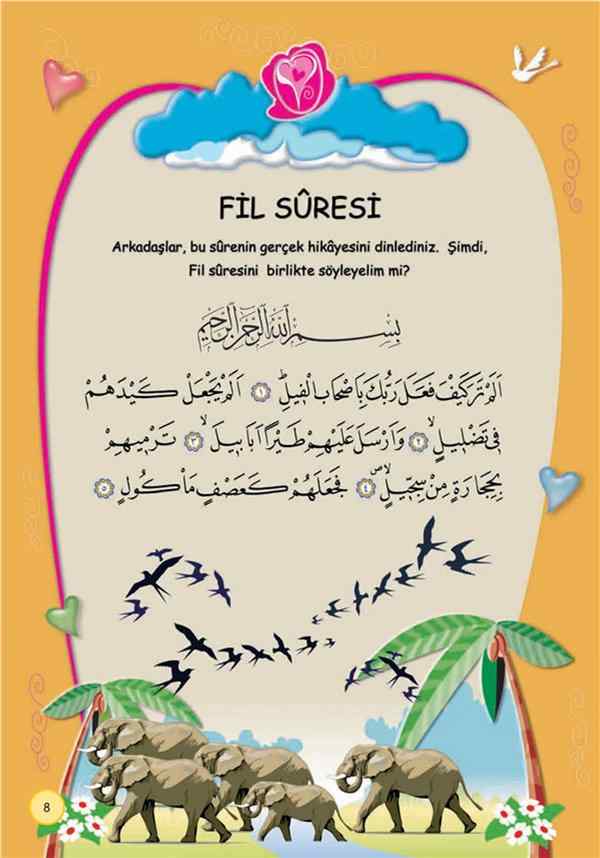 FİL SÛRESİ
Arkadaşlar, bu sûrenin gerçek hikâyesini dinlediniz. Şimdi,
Fil sûresini birlikte söyleyelim mi?
بِسْمِ اللّٰهِ الرَّحْمٰنِ الرَّحِيمِ
اَلَمْ تَرَ كَيْفَ فَعَلَ رَبُّكَ بِاَصْحَابِ الْفٖيلِۜ ﴿١﴾ اَلَمْ يَجْعَلْ كَيْدَهُمْ
فٖي تَضْلٖيلٍۙ ﴿٢﴾ وَاَرْسَلَ عَلَيْهِمْ طَيْرًا اَبَابٖيلَۙ ﴿٣﴾ تَرْمٖيهِمْ
بِحِجَارَةٍ مِنْ سِجّٖيلٍۙ ﴿٤﴾ فَجَعَلَهُمْ كَعَصْفٍ مَاْكُولٍ ﴿٥﴾
8